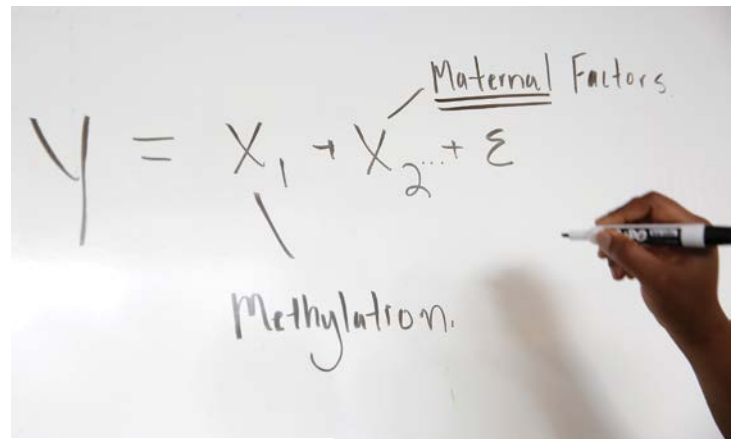 Maternal Factors
Y = X₁ + X₂...+ ε
Methylation.